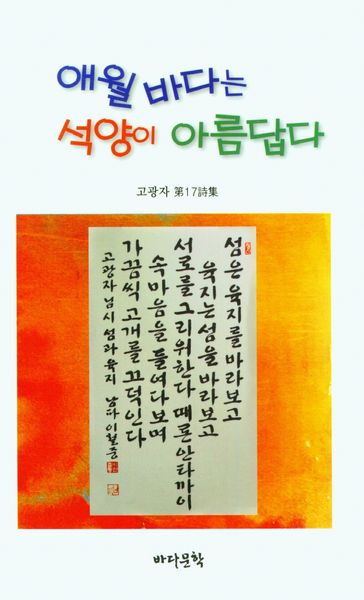 애월 바다는
석양이 아름답다
고광자 第17詩集
섬은 육지를 바라보고
육지는 섬을 바라보고
서로를 그리워한다 때론 안타까이
속마음을 들여다보며
가끔씩 고개를 끄덕인다
고광자 님 시 섬과 육지
바다문학